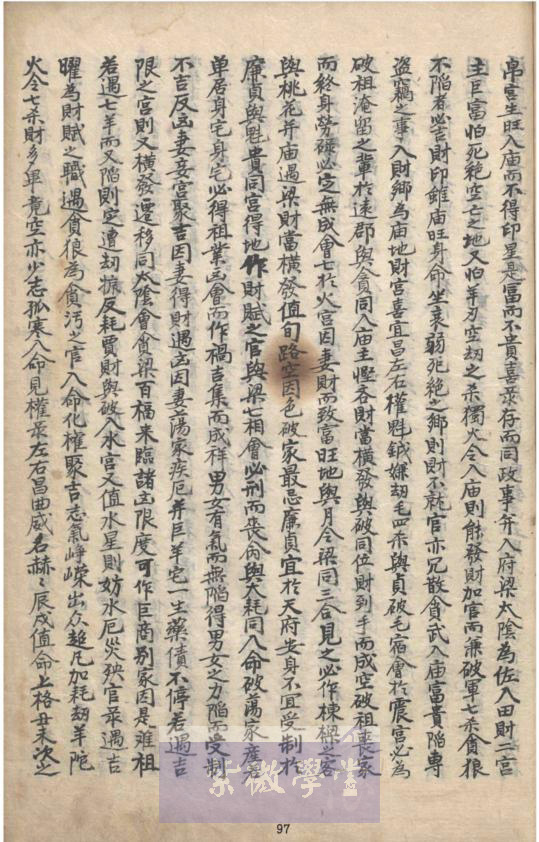 帛宮生旺入庙而不得印星是富而不貴喜彔存而同政事并入府梁太陰為佐入田財二宮
主巨富怕死絶空亡之地又怕羊刃空刼之杀獨火令入庙則能發財加官而兼破軍七杀貪狼
不陷者必吉財印雖庙旺身命坐衰弱死絶之鄉則財不就官亦冗散貪武入庙富貴陷專
盗竊之事入財鄉為庙地財宮喜宜昌左右權魁鉞嫌刼毛四杀與貞破毛宿會於震宮必為
破祖淹留之輩於遠郡與貪同入庙主慳吝財當橫發與破同位財到手而成空破祖喪家
而終身勞碌必定無成會七於火宮因妻財而致富旺地與月令梁同三合見之必作棟樑之客
與桃花并庙遇梁財當橫發值旬路空因色破家最忌廉貞宜於天府安身不宜受制於
廉貞與魁貴同宮得地作財賦之官與梁七相會必刑而喪内與大耗同入命破蕩家產若
单居身宅身宅必得祖業凶會而作禍吉集而成祥男女有氣而無陷得男女之力陷而受制
不吉反凶妻妾宮聚吉因妻得財遇凶因妻蕩家疾厄并巨羊宅一生藥債不停若遇吉
限之宮則又橫發遷移同太陰會貪梁百福來臨諸凶限度可作巨商别家因是难祖
若遇七羊而又陷則定遭刼掠反耗賈財與破入水宮又值水星則妨水厄災殃官彔遇吉
曜為財賦之職遇貪狼為貪污之官入命化權聚吉志氣崢嶸出众超凡加耗刼羊陀
火令七杀財多畢竟空亦少志孤寒入命見權彔左右昌曲威名赫〻辰戌值命上格丑未次之
紫微學堂
97